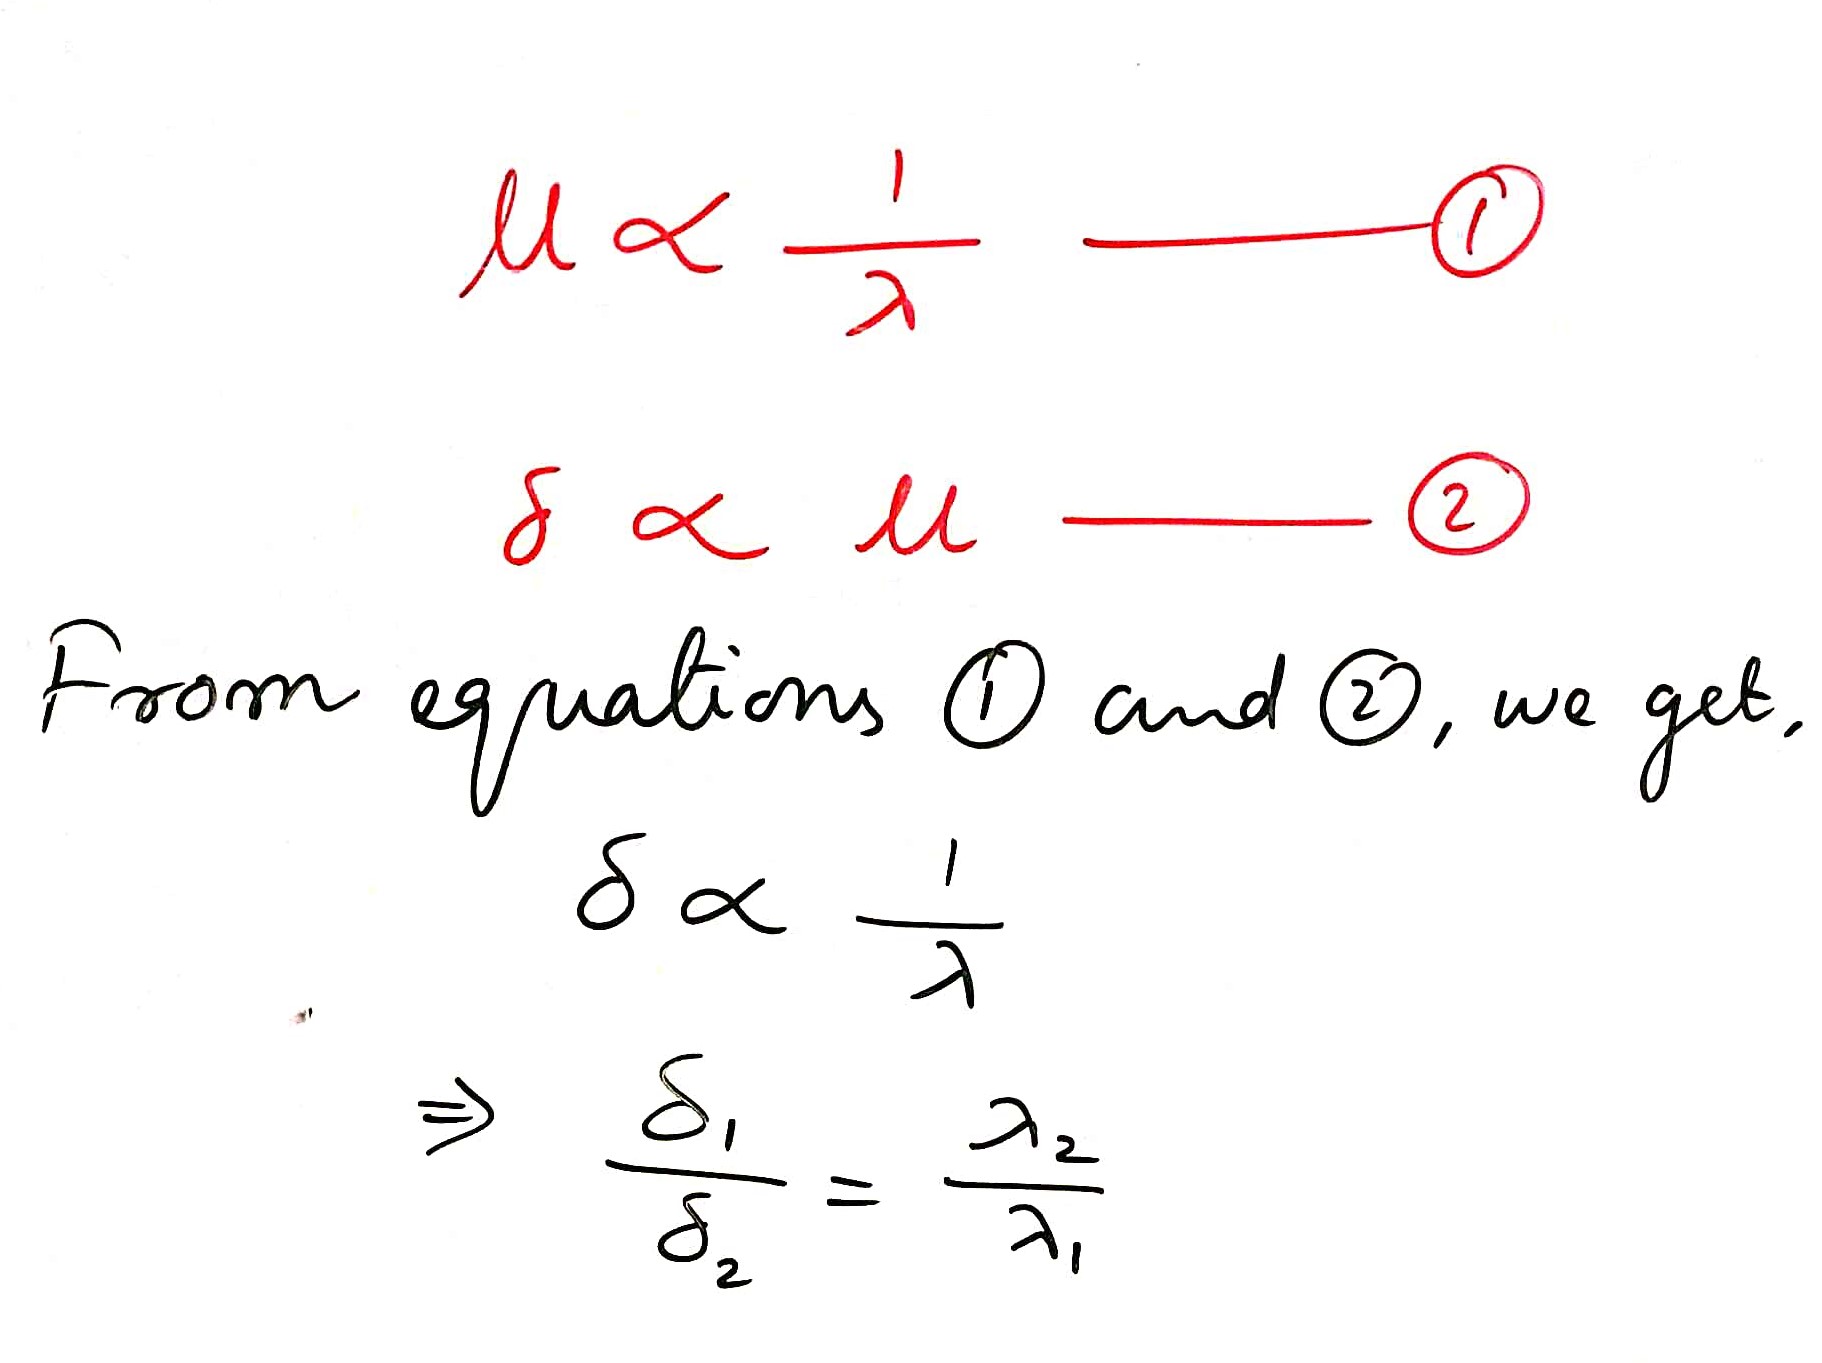 μ ∝ 1/λ —— ①
δ ∝ μ —— ②
From equations ① and ②, we get,
δ ∝ 1/λ
⇒ δ₁/δ₂ = λ₂/λ₁